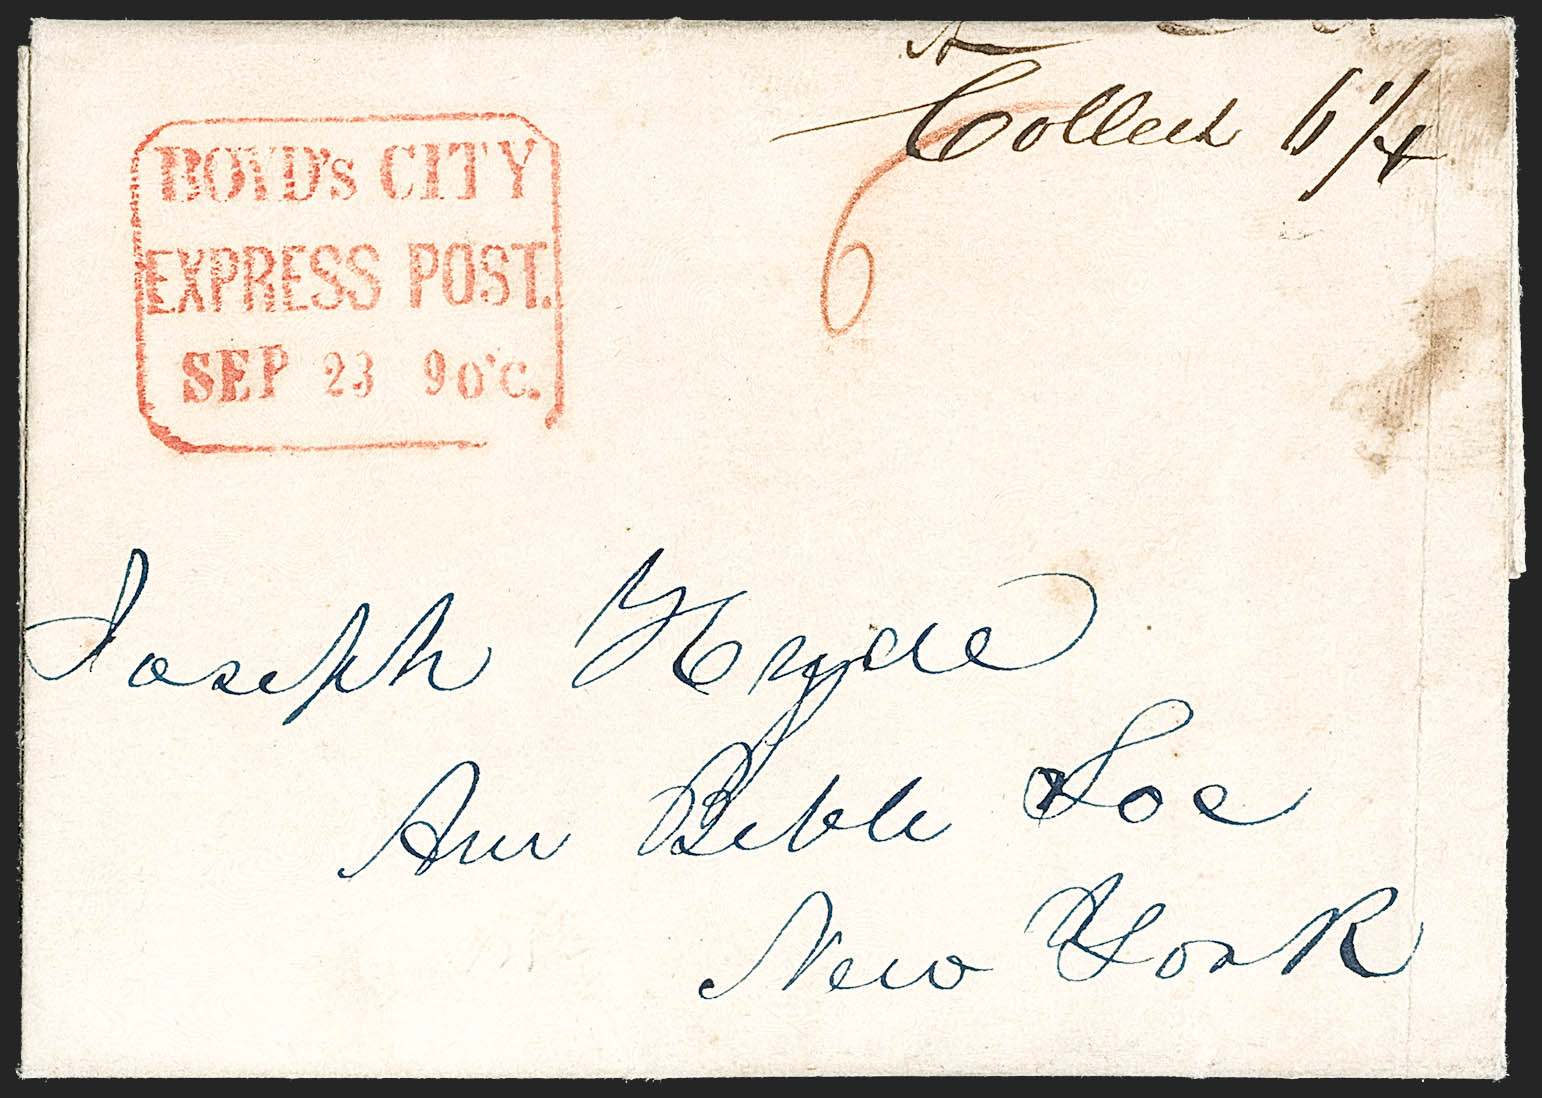 BOYD'S CITY
EXPRESS POST.
SEP 23 9 o'c.
Collect 6 1/4
6
Joseph Hyde
Am Bible Soc
New York